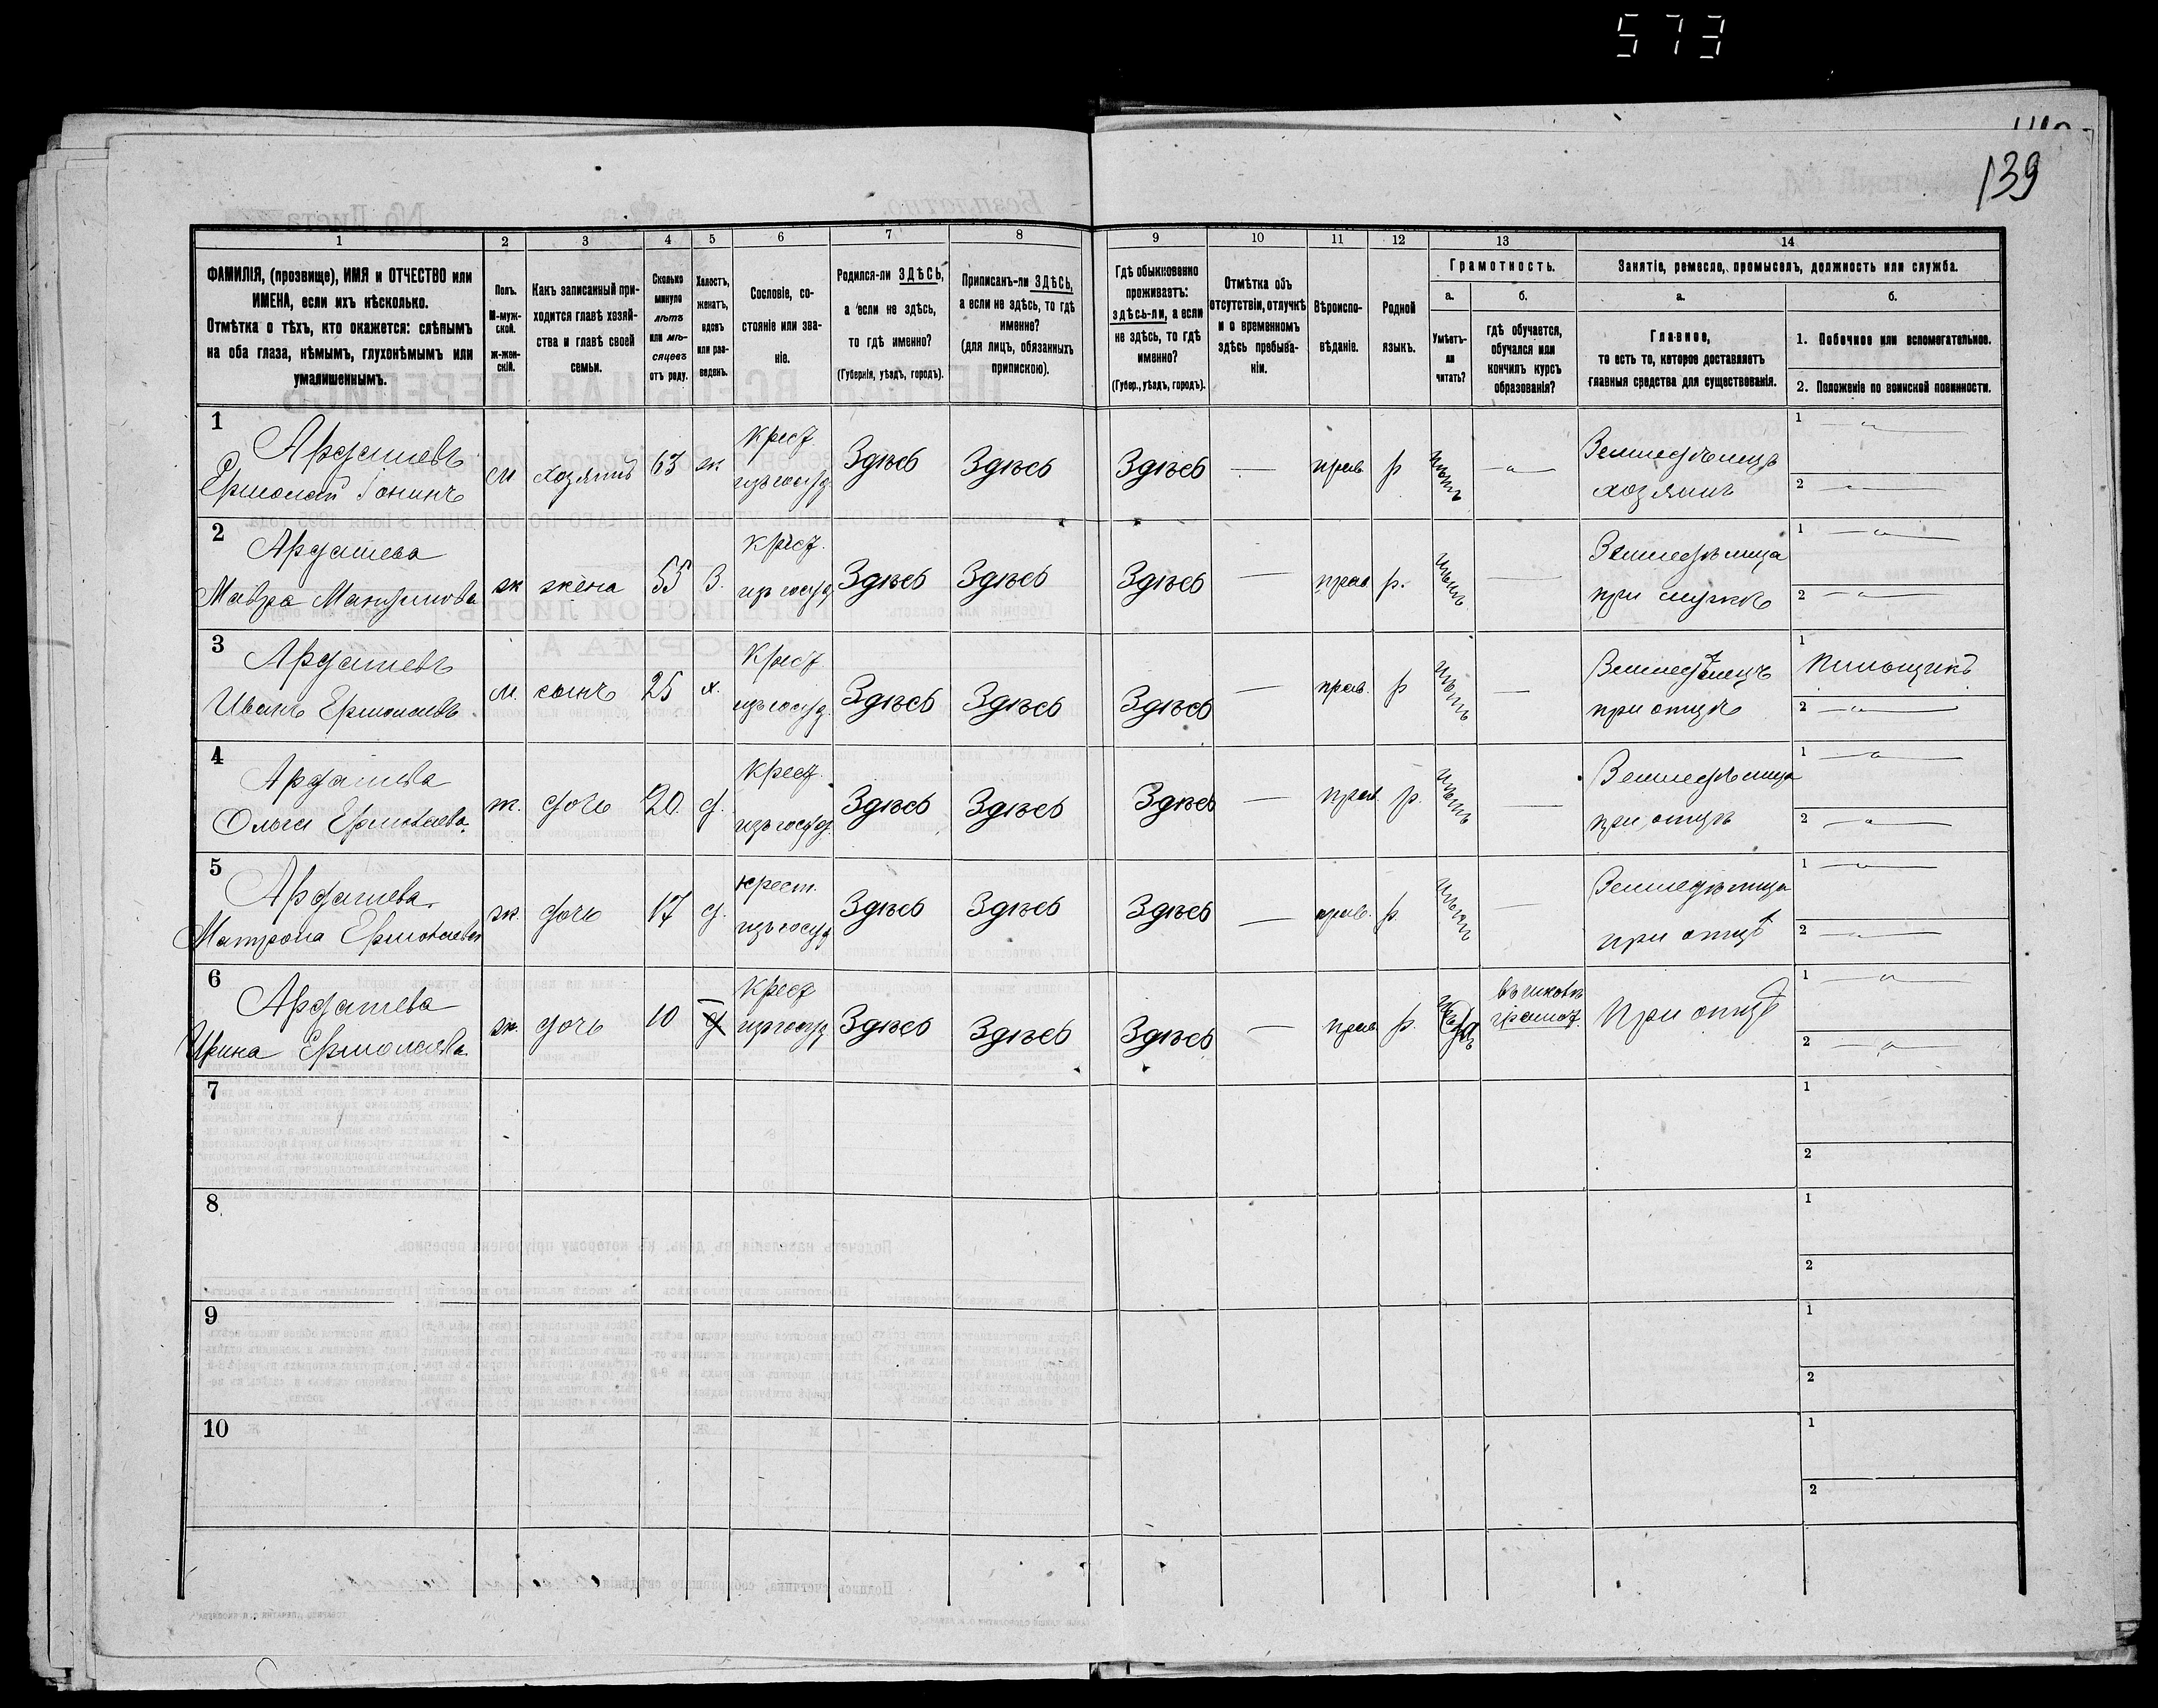 573
139
1
2
3
4
5
6
7
8
9
10
11
12
13
14
ФАМИЛІЯ, (прозвище), ИМЯ и ОТЧЕСТВО или
ИМЕНА, если ихъ нѣсколько.
Отмѣтка о тѣхъ, кто окажется: слѣпымъ
на оба глаза, нѣмымъ, глухонѣмымъ или
умалишеннымъ.
Полъ.
М-муж-
ской.
ж-жен-
скій.
Какъ записанный при-
ходится главѣ хозяй-
ства и главѣ своей
семьи.
Сколько
минуло
лѣтъ
или мѣ-
сяцевъ
отъ роду.
Холостъ,
женатъ,
вдовъ
или раз-
веденъ.
Сословіе, со-
стояніе или зва-
ніе.
Родился-ли ЗДѢСЬ,
а если не здѣсь,
то гдѣ именно?
(Губернія, уѣздъ, городъ).
Приписанъ-ли ЗДѢСЬ,
а если не здѣсь, то гдѣ
именно?
(для лицъ, обязанныхъ
припискою).
Гдѣ обыкновенно
проживаетъ:
здѣсь-ли, а если
не здѣсь, то гдѣ
именно?
(Губер., уѣздъ, городъ).
Отмѣтка объ
отсутствіи, отлучкѣ
и о временномъ
здѣсь пребыва-
ніи.
Вѣроиспо-
вѣданіе.
Родной
языкъ.
Грамотность.
а.
Умѣетъ-
ли
читать?
б.
гдѣ обучается,
обучался или
кончилъ курсъ
образованія?
Занятіе, ремесло, промыселъ, должность или служба.
а.
Главное,
то есть то, которое доставляетъ
главныя средства для существованія.
б.
1. Побочное или вспомогательное.
2. Положеніе по воинской повинности.
1
Ардашевъ
Ермолай Іонинъ
м хозяинъ 63 ж
Крест
изъ госуд
Здѣсь Здѣсь Здѣсь — прав р нѣтъ —"—
Земледѣлецъ
хозяинъ
1 —"—
2 —"—
2
Ардашева
Мавра
ж жена 55 З.
Крест.
изъ госуд
Здѣсь Здѣсь Здѣсь — прав р. нѣтъ —
Земледѣлица
при мужѣ
1 —"—
2 —"—
3
Ардашевъ
Иванъ Ермолаевъ
м. сынъ 25 х.
Крест
изъ госуд.
Здѣсь Здѣсь Здѣсь — прав. р нѣтъ —
Земледѣлецъ
при отцѣ
1 Пильщикъ
2 —"—
4
Ардашева
Ольга Ермолаева
ж. дочь 20. д.
Крест.
изъ госуд.
Здѣсь Здѣсь Здѣсь — прав. р. нѣтъ —
Земледѣлица
при отцѣ
1 —"—
2 —"—
5
Ардашева
Матрона Ермолаева
ж. дочь 17 д.
крест.
изъ госуд
Здѣсь Здѣсь Здѣсь — прав. р. нѣтъ —
Земледѣлица
при отцѣ
1 —"—
2 —"—
6
Ардашева
Ирина Ермолаева
ж. дочь 10 д
Крест
изъ госуд
Здѣсь Здѣсь Здѣсь — прав р. да
въ школѣ
грамот.
При отцѣ
1 —"—
2 —"—
7
1
2
8
1
2
9
1
2
10
1
2